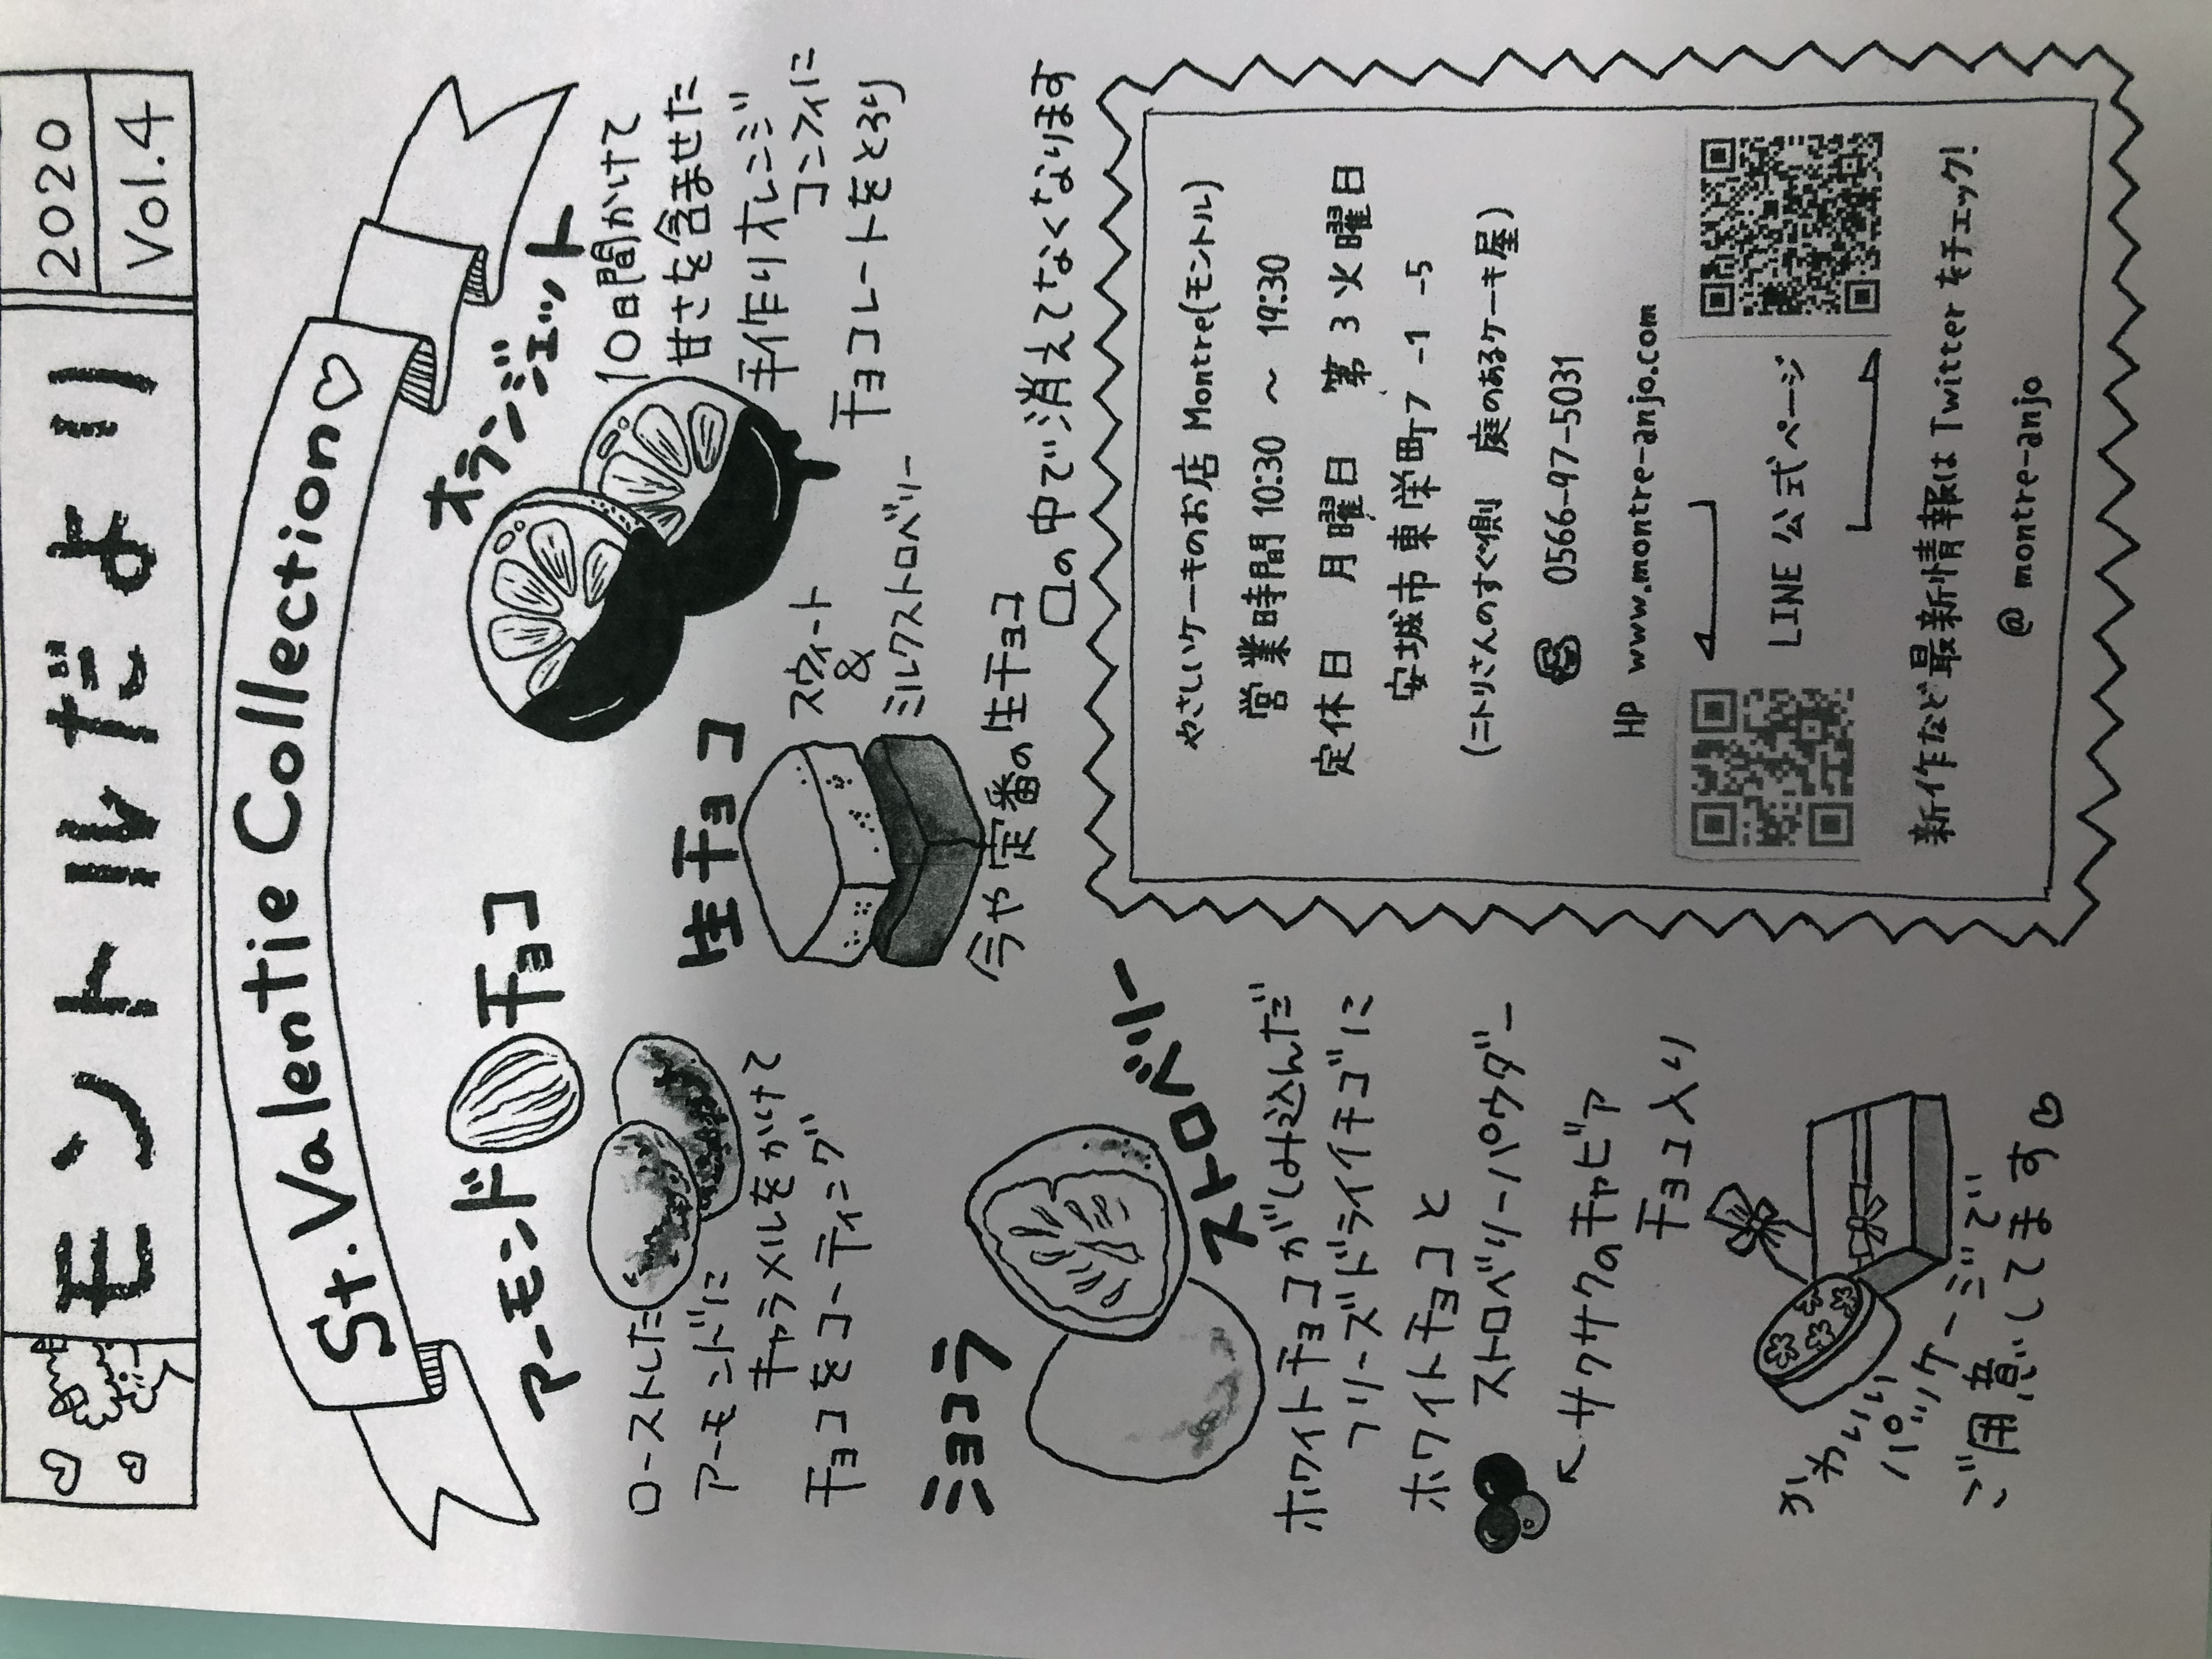 モントルだより
2020
Vol.4
St.Valentie Collection♡
アーモンドチョコ
ローストした
アーモンドに
キャラメルをかけて
チョコをコーティング
オランジェット
10日間かけて
甘さを含ませた
手作りオレンジ
コンフィに
チョコレートをとろり
生チョコ
スウィート
&
ミルクストロベリー
今や定番の生チョコ
口の中で消えてなくなります
ショコラ
ストロベリー
ホワイトチョコがしみ込んだ
フリーズドライイチゴに
ホワイトチョコと
ストロベリーパウダー
←サクサクのキャビア
チョコ入り
かわいい
パッケージで
ご用意してます♡
やさしいケーキのお店 Montre(モントル)
営業時間 10:30 ~ 19:30
定休日 月曜日 第3火曜日
安城市東栄町7-1-5
(ニトリさんのすぐ側 庭のあるケーキ屋)
☎ 0566-97-5031
HP www.montre-anjo.com
LINE 公式ページ
新作など最新情報は Twitter をチェック!
@ montre-anjo